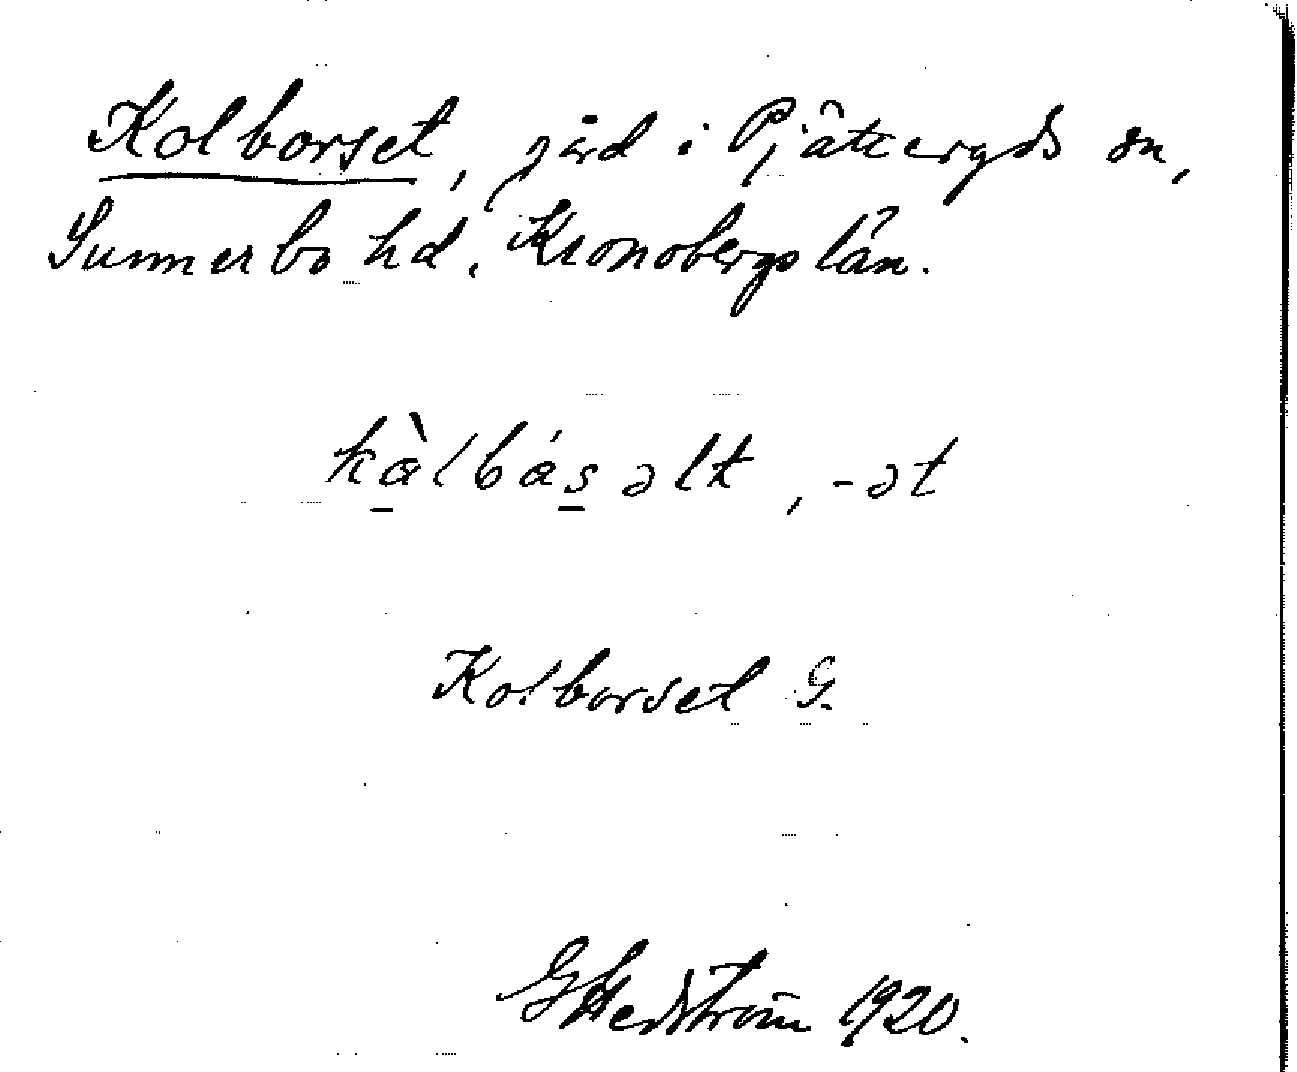 Kolborset, gård i Pjätteryds sn,
Sunnerbo hd, Kronobergs län.
kὰ̲lbάs̲əlt, -ət
Kolborset G.
G Hedström 1920.